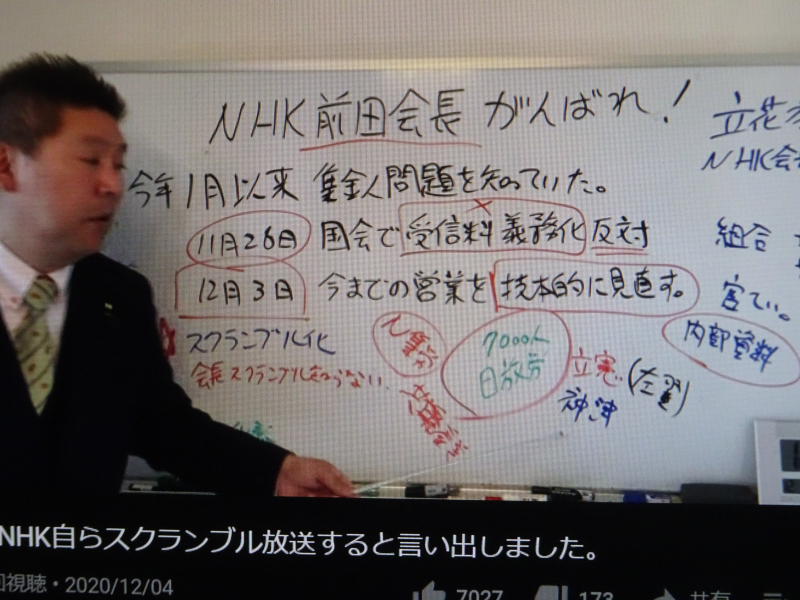 NHK前田会長 がんばれ!
今年1月以来 集金人問題を知っていた。
11月26日 国会で受信料義務化反対
12月3日 今までの営業を抜本的に見直す。
スクランブル化
会長スクランブル
7000人
日放労
立憲(左翼)
神津
立花
NHK会
組合
官てい。
内部資料
NHK自らスクランブル放送すると言い出しました。
回視聴・2020/12/04
7027
173
共有